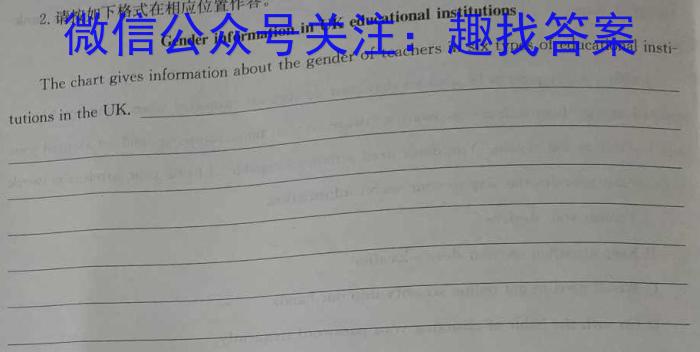 2.请按如下格式在相应位置作答。
Gender information in UK educational institutions
微信公众号关注：趣找答案
The chart gives information about the gender of teachers in six types of educational insti-
tutions in the UK.